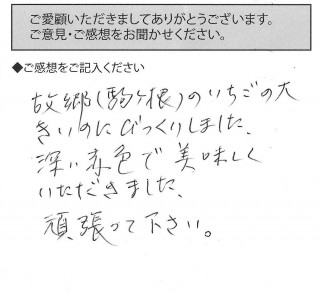 ご愛顧いただきましてありがとうございます。
ご意見・ご感想をお聞かせください。
◆ご感想をご記入ください
故郷(駒ヶ根)のいちごの大
きいのにびっくりしました、
深い赤色で美味しく
いただきました、
頑張って下さい。